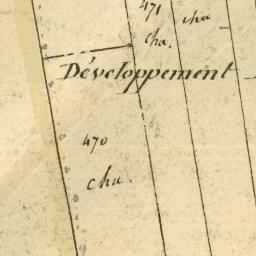 471
cha
cha.
Développement
470
cha.